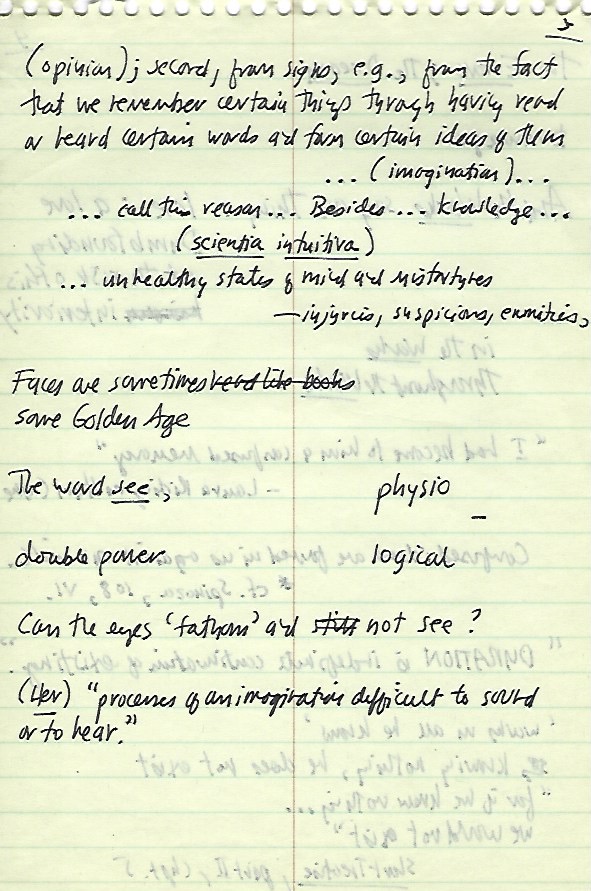 5
(opinion); second, from signs, e.g., from the fact
that we remember certain things through having read
or heard certain words and form certain ideas of them
... (imagination)...
... call this reason... Besides... knowledge...
(scientia intuitiva)
... unhealthy states of mind and misfortunes
—injuries, suspicions, enmities,
Faces are sometimes read like books
some Golden Age
The word see, physio
–
double power logical
Can the eyes 'fathom' and still not see?
(Her) "processes of an imagination difficult to sound
or to hear."